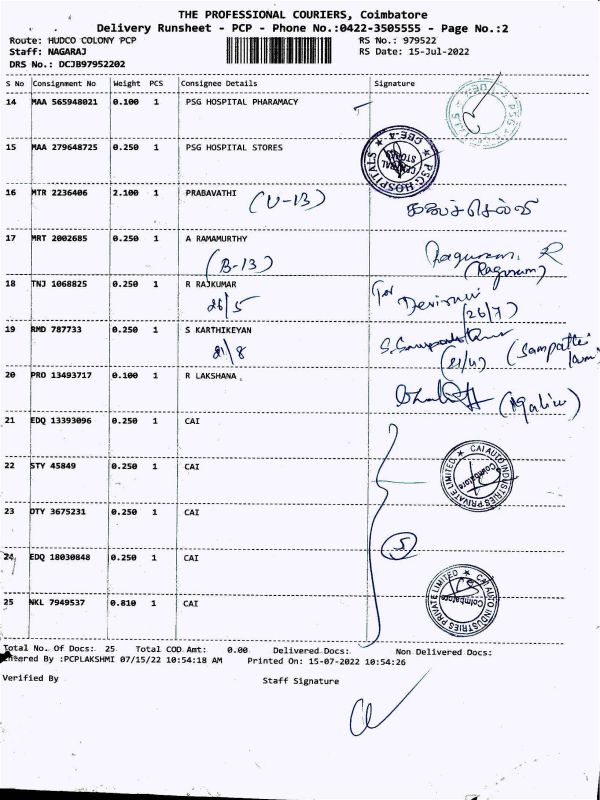 THE PROFESSIONAL COURIERS, Coimbatore
Delivery Runsheet - PCP - Phone No.:0422-3505555 - Page No.:2
Route: HUDCO COLONY PCP RS No.: 979522
Staff: NAGARAJ RS Date: 15-Jul-2022
DRS No.: DCJB97952202
S No Consignment No Weight PCS Consignee Details Signature
14 MAA 565948021 0.100 1 PSG HOSPITAL PHARAMACY
15 MAA 279648725 0.250 1 PSG HOSPITAL STORES
PSG HOSPITALS ★ CBE-4 ★ CENTRAL STORES
16 MTR 2236406 2.100 1 PRABAVATHI
(U-13) கலைச்செல்வி
17 MRT 2002685 0.250 1 A RAMAMURTHY
(B-13) (Raguram)
18 TNJ 1068825 0.250 1 R RAJKUMAR
26/5 (26/7)
19 RMD 787733 0.250 1 S KARTHIKEYAN
21/8 (21/4)
20 PRO 13493717 0.100 1 R LAKSHANA
21 EDQ 13393096 0.250 1 CAI
22 STY 45849 0.250 1 CAI
CAI AUTO INDUSTRIES PRIVATE LIMITED ★ Coimbatore
23 DTY 3675231 0.250 1 CAI
5
24 EDQ 18030848 0.250 1 CAI
25 NKL 7949537 0.810 1 CAI
CAI AUTO INDUSTRIES PRIVATE LIMITED ★ Coimbatore
Total No. Of Docs: 25 Total COD Amt: 0.00 Delivered Docs: Non Delivered Docs:
Entered By :PCPLAKSHMI 07/15/22 10:54:18 AM Printed On: 15-07-2022 10:54:26
Verified By Staff Signature